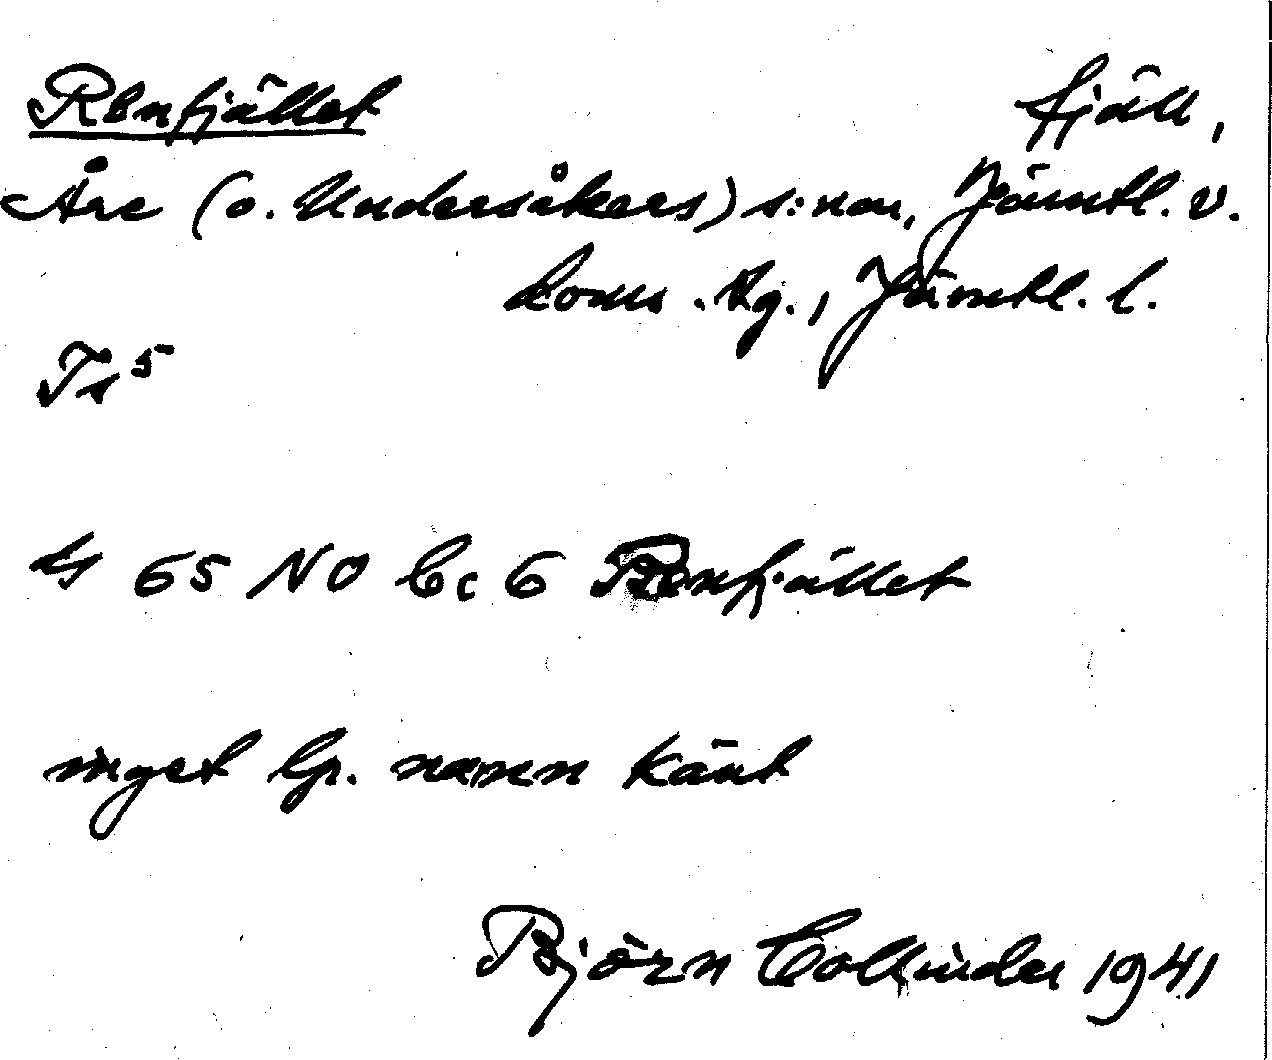 Renfjället fjäll,
Åre (o. Undersåkers) s:nar, Jämtl. v.
doms. tg., Jämtl. l.
Ts 5
65 NO Cc 6 Renfjället
inget lp. namn känt
Björn Collinder 1941